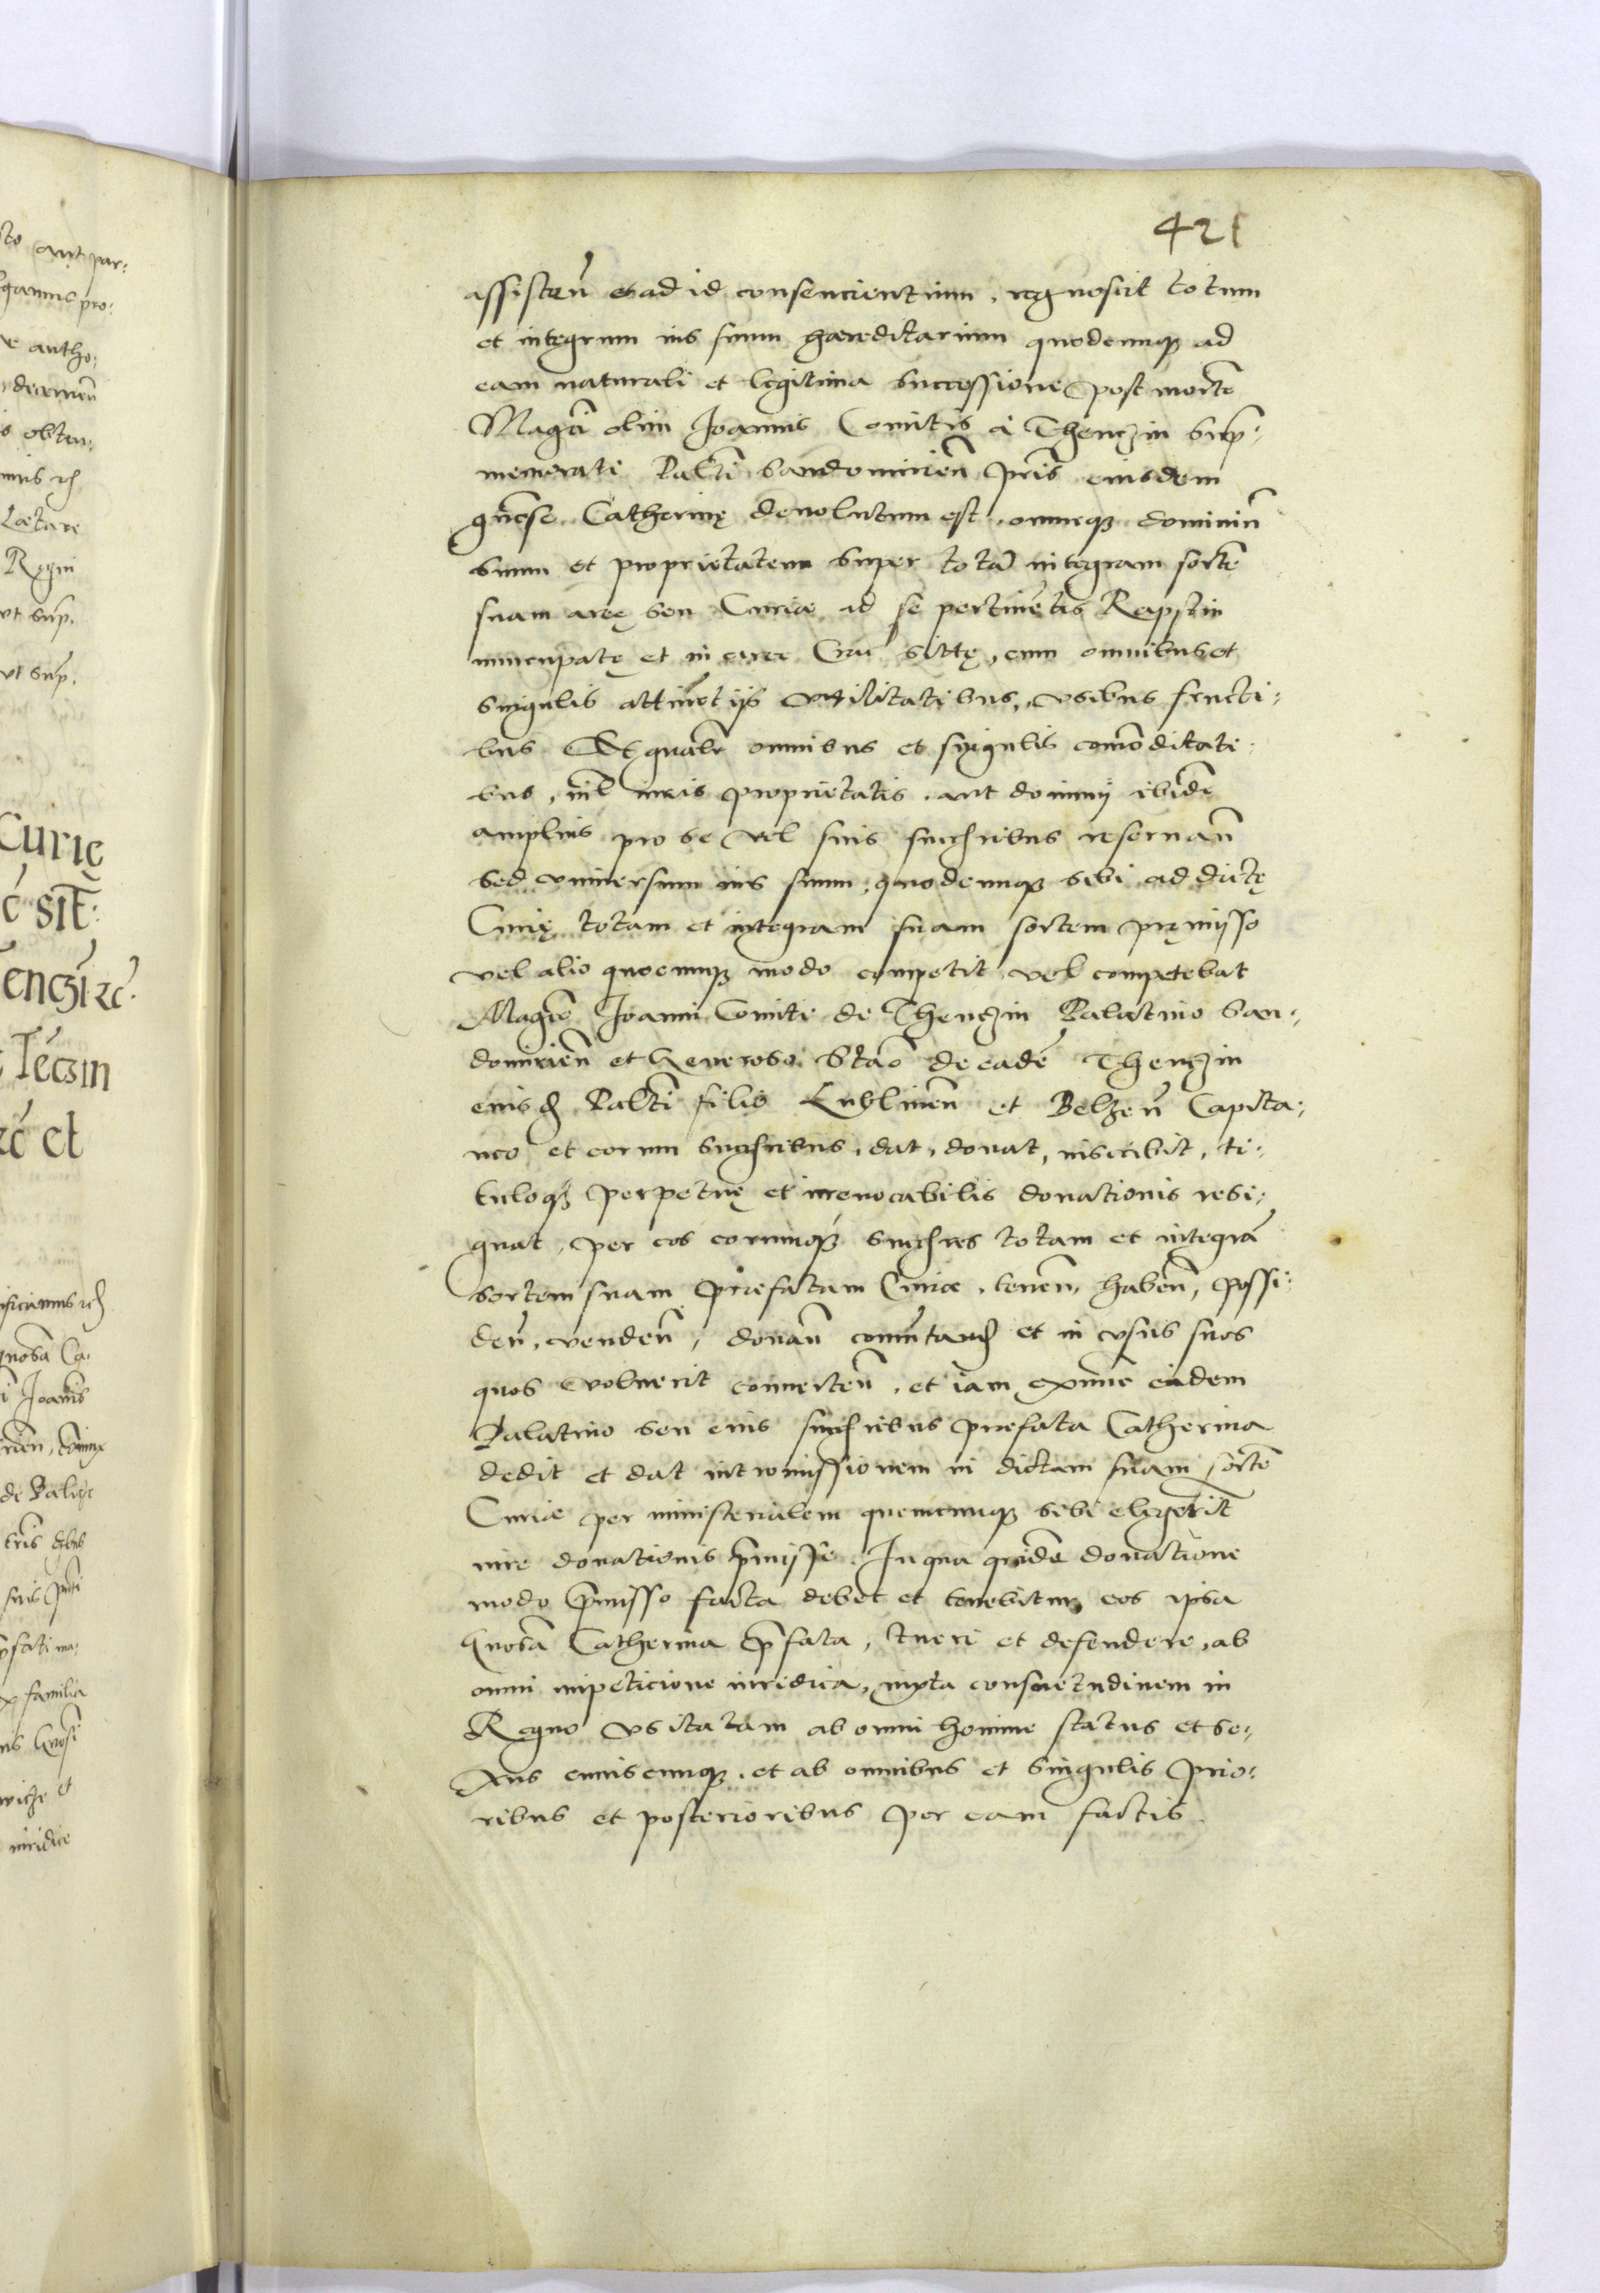 421
assisten̄ et ad id consencientium, recognoscit totum
et integrum ius suum haereditarium quodcumq3 ad
eam naturali et legitima successione post mortē
Magci olim Joannis Comitis à Thenczin sup:
memorati Palti Sandomirien̄ pris eiusdem
gn̄ose Catherinę deuolutum est, omneq3 dominiū
suum et proprietatem super totā integram sortē
suam areę seu Curiae ad se pertinētis Rapstin
nuncupatę et in arce Crac̄ sittę, cum omnibus et
singulis attinētijs vtilitatibus, vsibus fructi:
bus Et gnalr omnibus et singulis comoditati:
bus, nil iuris proprietatis, aut dominij ibidē
amplius pro se vel suis succribus reseruan̄
sed vniuersum ius suum, quodcumq3 sibi ad dictę
Curię totam et integram suam sortem pręmisso
vel alio quocumq3 modo competit vel competebat
Magco Joanni Comiti de Thenczin Palatino San:
domirien̄ et Generoso Stāo de eadē Thenczin
eiusd Palti filio Lublinen̄ et Belzen̄ Capita:
neo et eorum succribus, dat, donat, inscribit, ti:
tuloq3 perpetuę et irreuocabilis donationis resi:
gnat, per eos eorumq3 succres totam et integrā
sortem suam praefatam Curiae, tenen̄, haben̄, possi:
den̄, venden̄, donan̄ comūtand et in vsus suos
quos voluerit conuerten̄, et iam exnunc eidem
Palatino seu eius succribus praefata Catherina
dedit et dat intromissionem in dictam suam sortē
Curiae per ministerialem quemcumq3 sibi elegerit
iure donationis p̄missę. In qua quidē donatione
modo p̄misso facta debet et tenebitur eos ipsa
Gnosa Catherina p̄fata, tueri et defendere, ab
omni impeticione iuridica, iuxta consuetudinem in
Regno vsitatam ab omni homine status et se:
xus cuiuscumq3, et ab omnibus et singulis prio:
ribus et posterioribus per eam factis